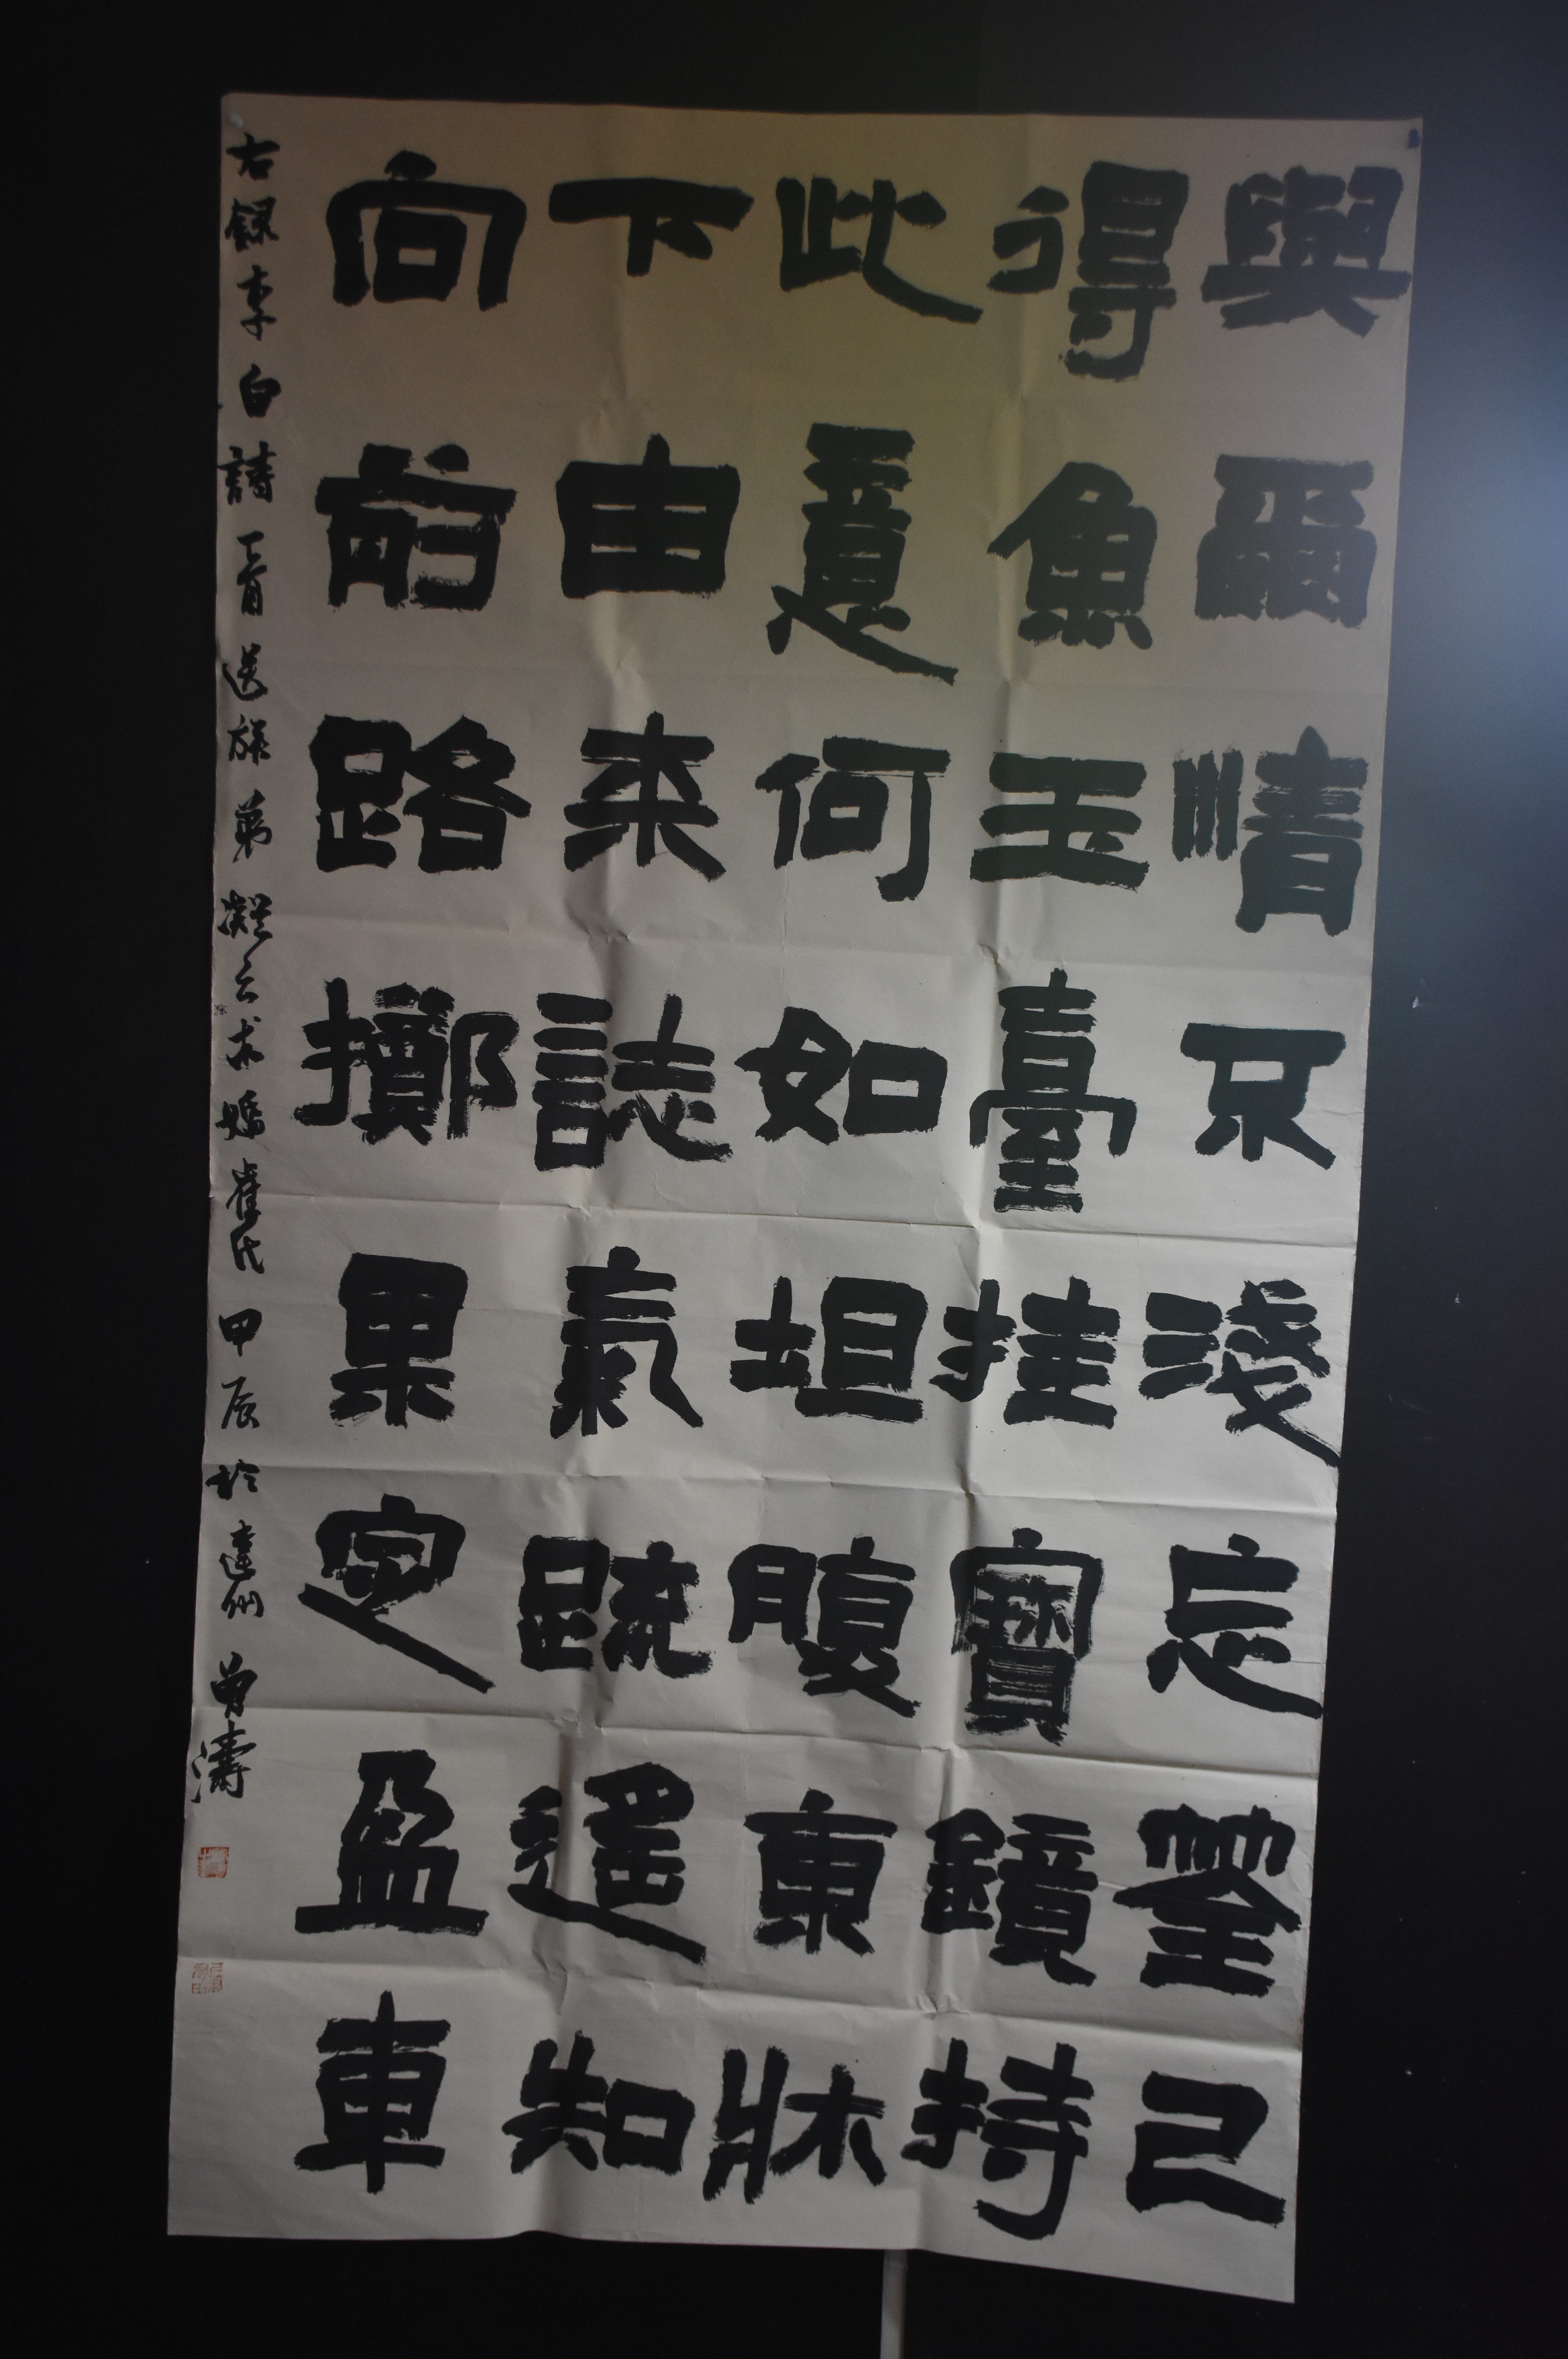 與爾情不淺忘筌已
得魚玉臺挂寶鏡持
此意何如坦腹東牀
下由来誌氣䟽遙知
向前路擲果定盈車
右録李白詩一首送族弟凝云求婚崔氏甲辰於達州曾濤